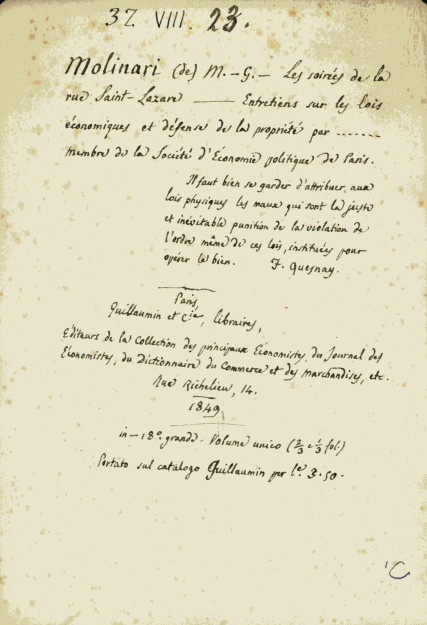 37. VIII. 23.
Molinari (de) M.-G. - Les soirées de la
rue Saint-Lazare — Entretiens sur les lois
économiques et défense de la propriété par .......
membre de la Société d'Économie politique de Paris.
Il faut bien se garder d'attribuer aux
lois physiques les maux qui sont la juste
et inévitable punition de la violation de
l'ordre même de ces lois, instituées pour
opérer le bien. F. Quesnay.
Paris,
Guillaumin et Cie, libraires,
Éditeurs de la Collection des principaux Économistes, du Journal des
Économistes, du Dictionnaire du Commerce et des Marchandises, etc.
Rue Richelieu, 14.
1849
in-18º. grande - Volume unico (2/3 e 1/3 fol.)
Portato sul catalogo Guillaumin per 3.50.